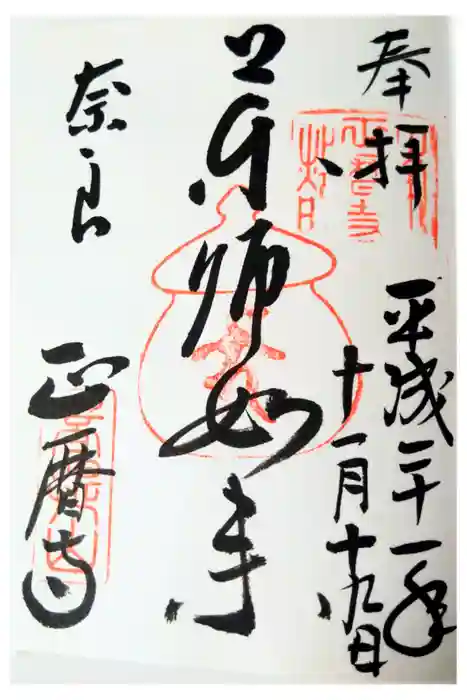 奉拝
平成二十一年
十一月十九日
薬師如来
奈良
正暦寺